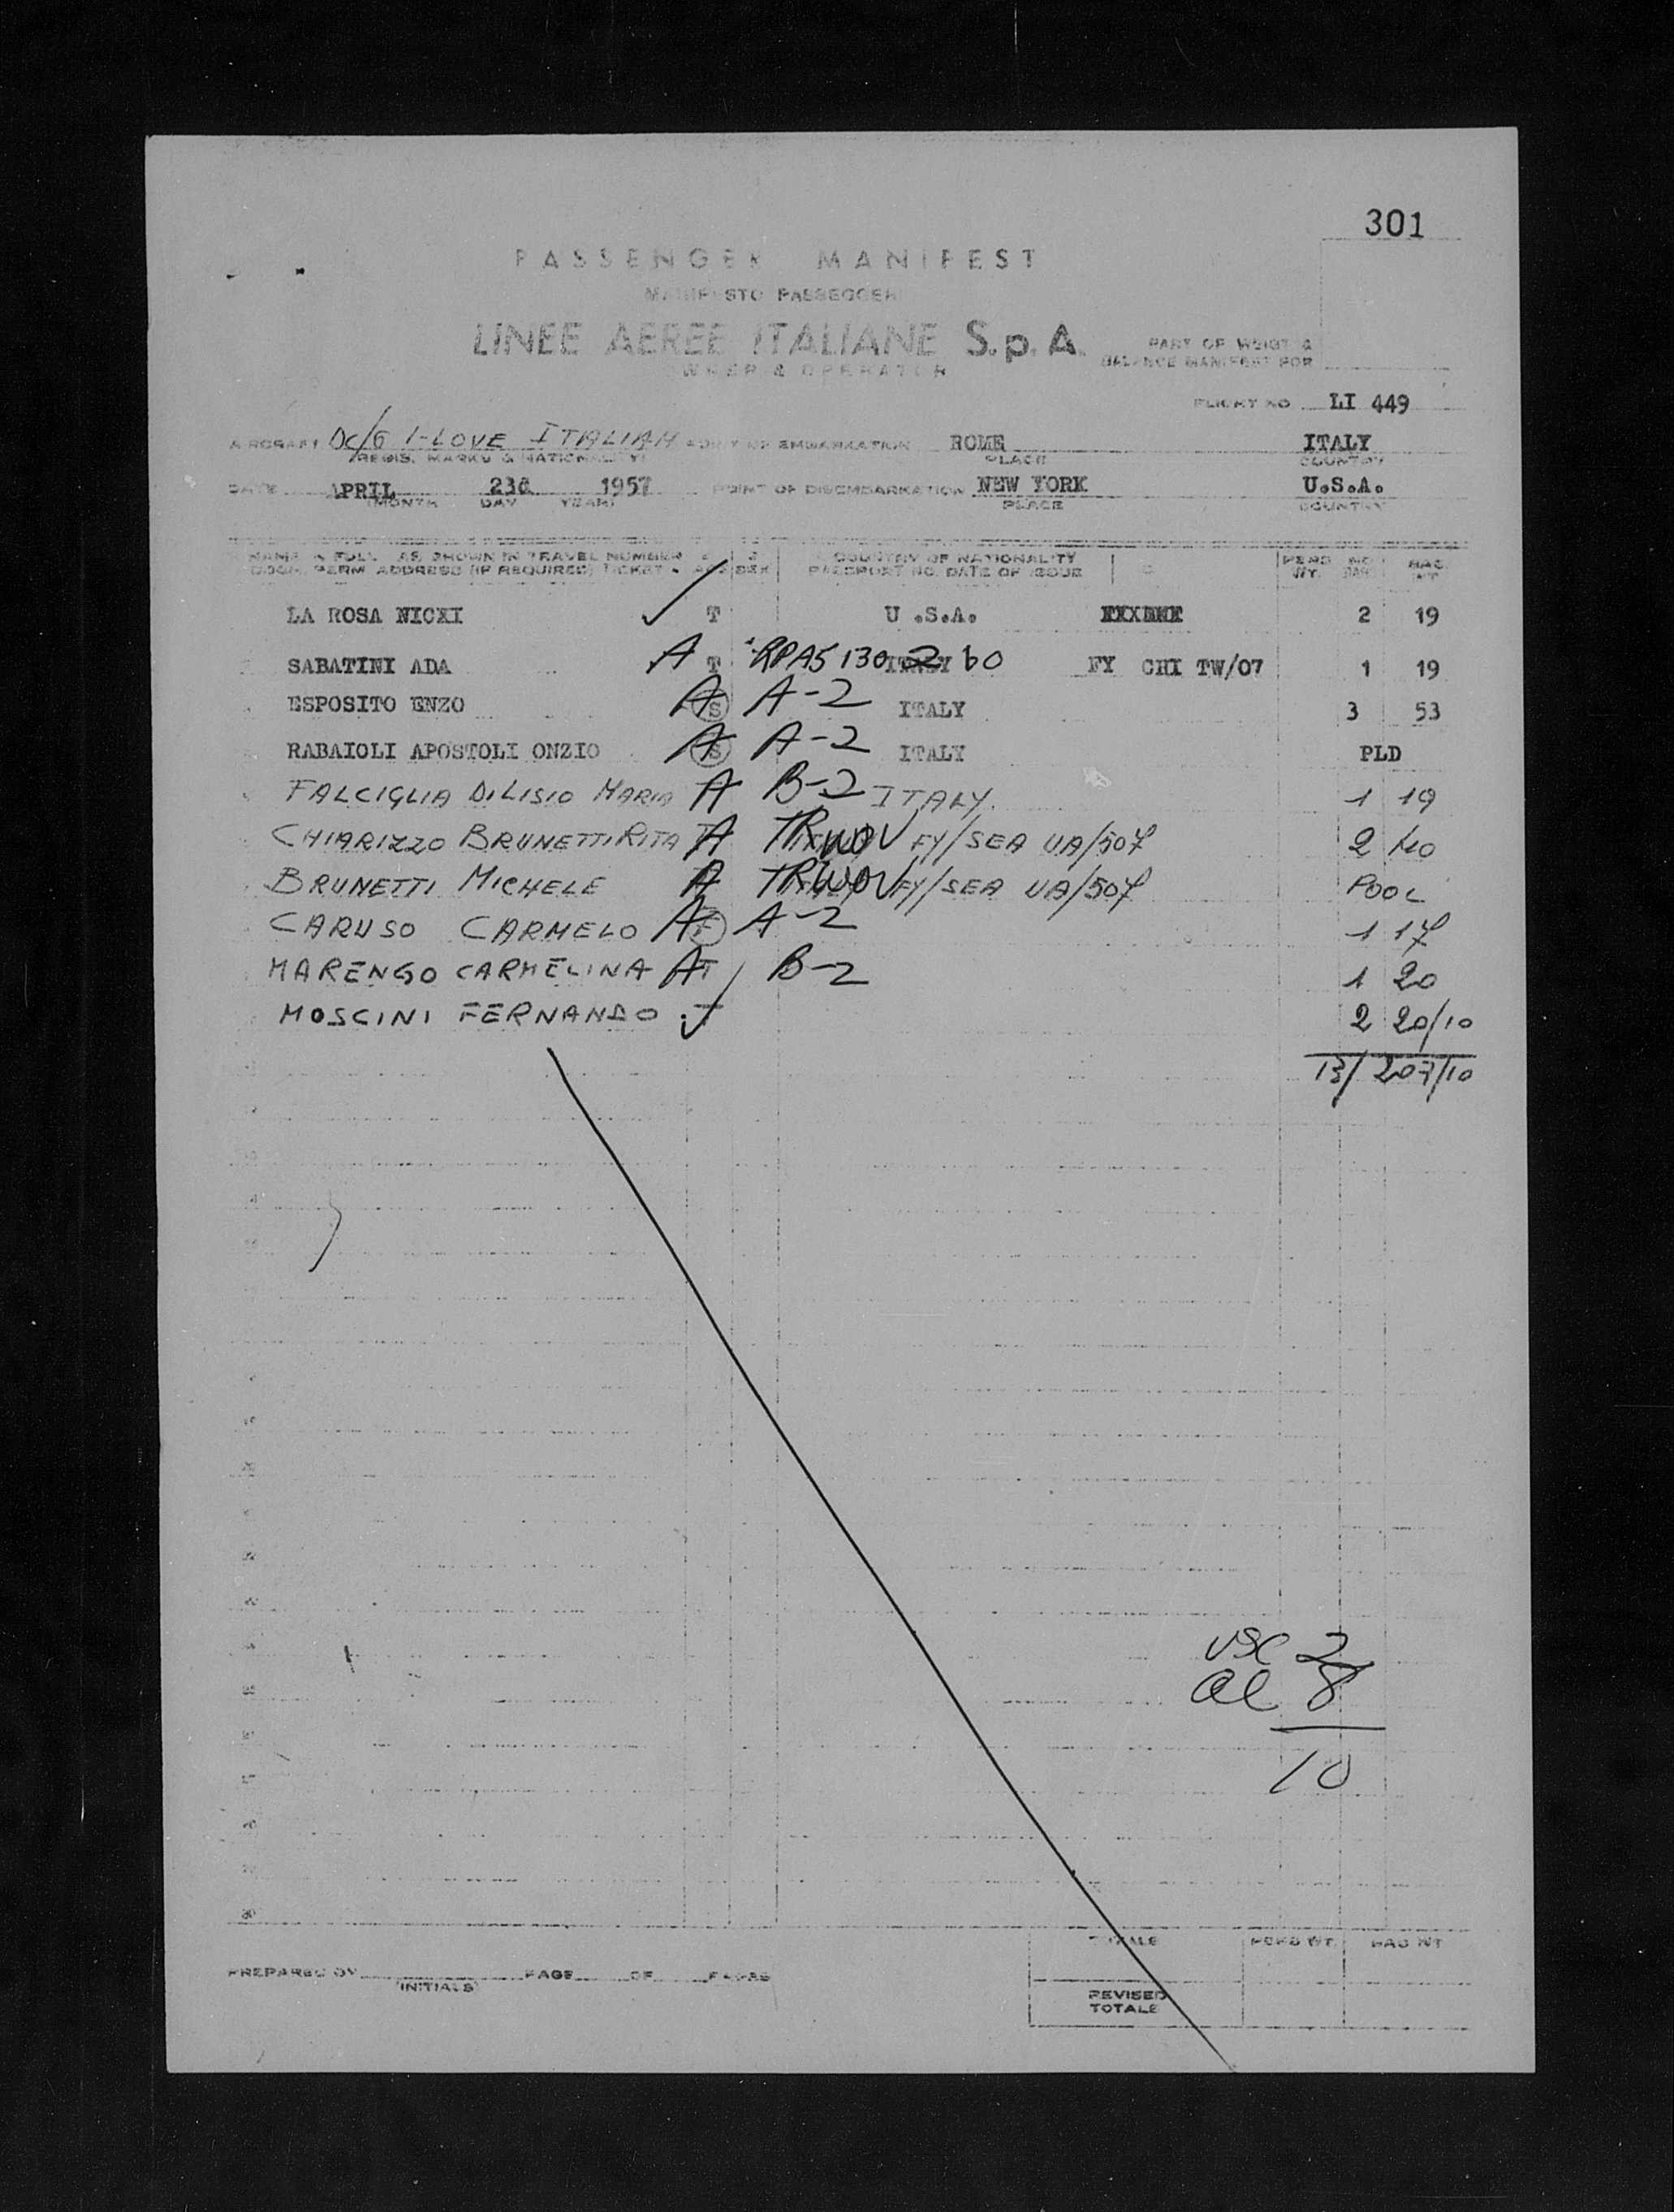 301
PASSENGER MANIFEST
MANIFESTO PASSEGGERI
LINEE AEREE ITALIANE S.p.A.
OWNER & OPERATOR
PART OF WEIGT &
BALANCE MANIFEST FOR
FLIGHT NO LI 449
AIRCRAFT DC/6 I-LOVE ITALIAN POINT OF EMBARKATION ROME ITALY
REGIS. MARKS & NATIONALITY) PLACE COUNTRY
DATE APRIL 23d 1957 POINT OF DISEMBARKATION NEW YORK U.S.A.
(MONTH DAY YEAR) PLACE COUNTRY
NAME IN FULL AS SHOWN IN TRAVEL NUMBER COUNTRY OF NATIONALITY PERS NO BAG
DOCS. PERM ADDRESS (IF REQUIRED) TICKET AGE SEX PASSPORT NO. DATE OF ISSUE WT. BAG WT
LA ROSA NICKI T U.S.A. 2 19
SABATINI ADA A T RPA5 130 ITALY 60 FY CHI TW/07 1 19
ESPOSITO ENZO A S A-2 ITALY 3 53
RABAIOLI APOSTOLI ONZIO A S A-2 ITALY PLD
FALCIGLIA DILISIO MARIA A B-2 ITALY. 1 19
CHIARIZZO BRUNETTI RITA A TRWOV FY/SEA UA/507 2 40
BRUNETTI MICHELE A TRWOV FY/SEA UA/507 POOL
CARUSO CARMELO A A-2 1 17
MARENGO CARMELINA A T B-2 1 20
MOSCINI FERNANDO T 2 20/10
13/ 207/10
USC 2
al 8
10
30
TOTALS PERS WT. BAG WT
PREPARED BY PAGE OF PAGES
(INITIALS)
REVISED
TOTALS